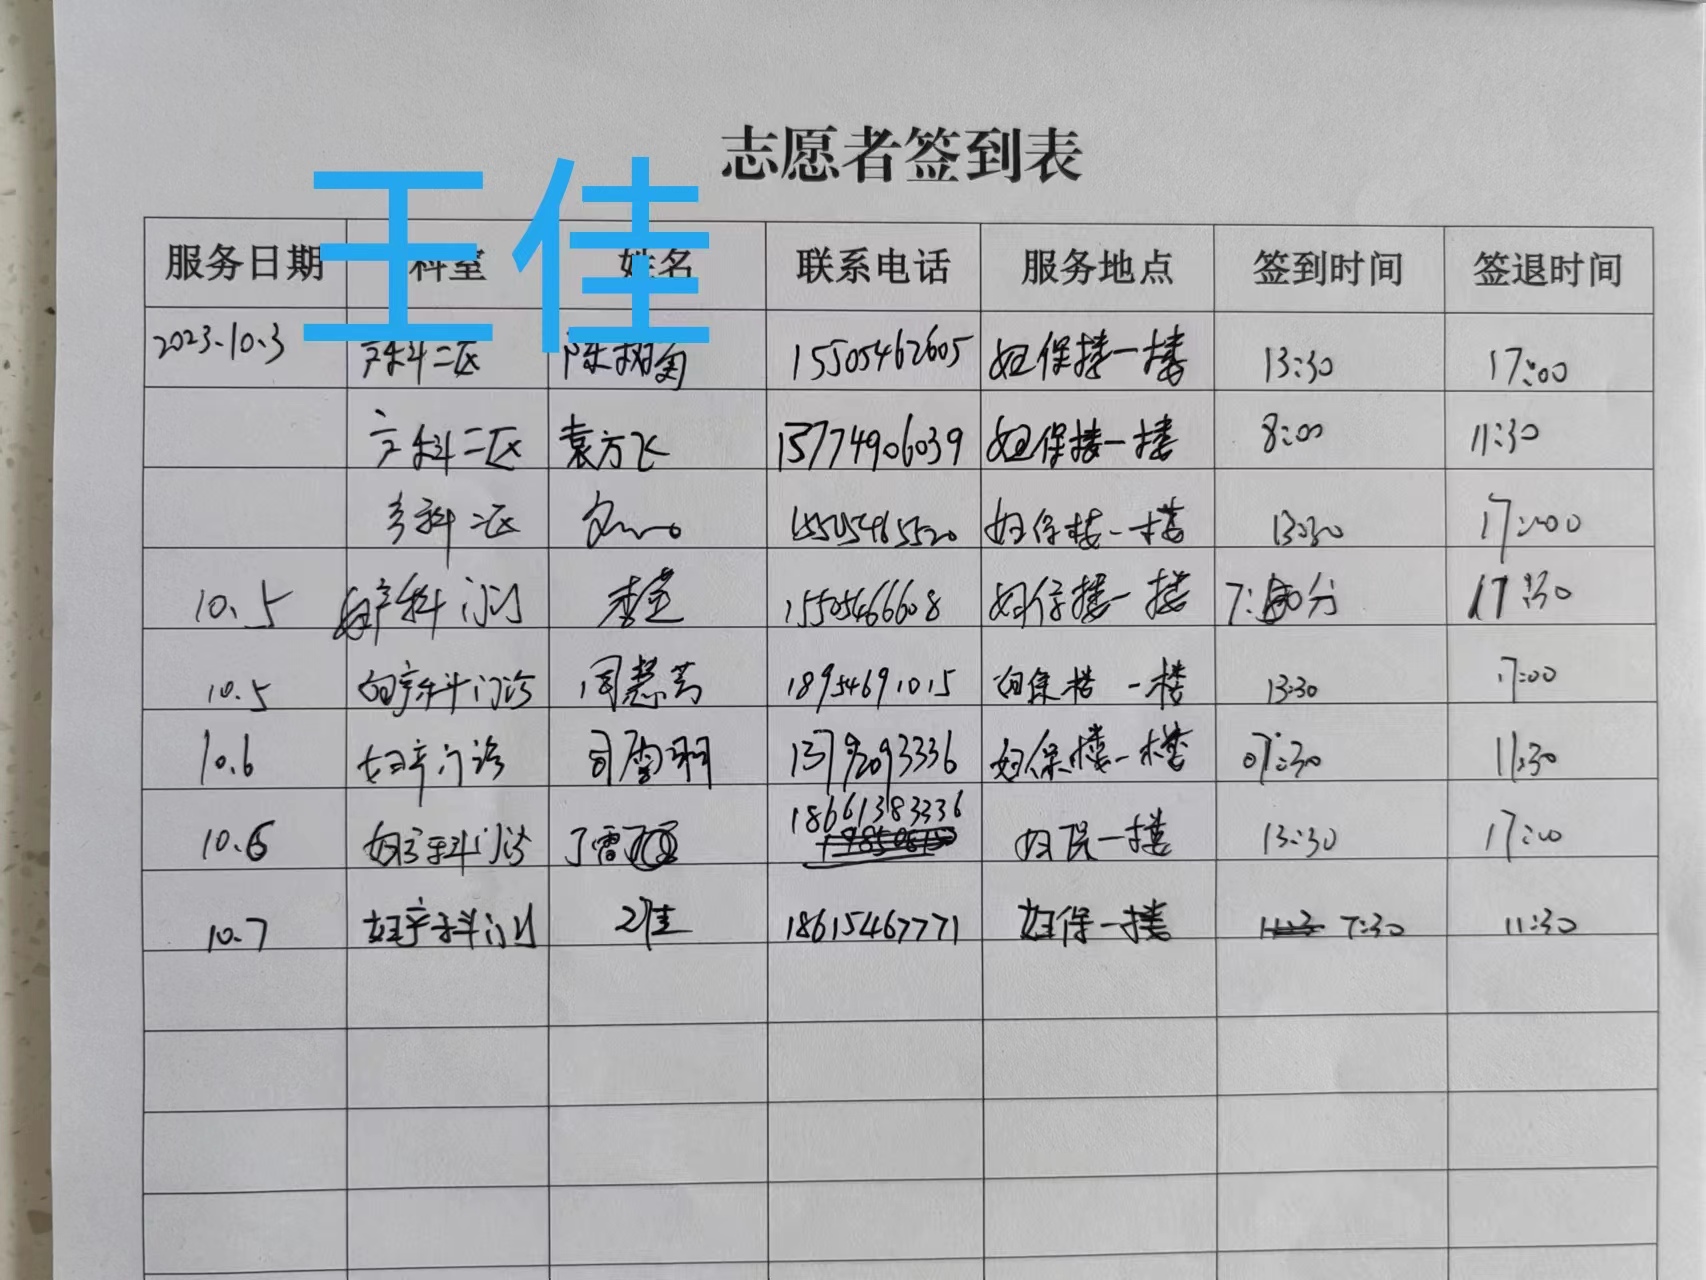 志愿者签到表
王佳
服务日期 科室 姓名 联系电话 服务地点 签到时间 签退时间
2023.10.3 产科二区 陈树 15505462605 妇保楼一楼 13:30 17:00
产科二区 袁方飞 15774906039 妇保楼一楼 8:00 11:30
产科二区 15505465520 妇保楼一楼 13:30 17:00
10.5 妇产科门诊 李莹 15505466608 妇保楼一楼 7: 分 17:30
10.5 妇产科门诊 周慧芳 18954691015 妇保楼一楼 13:30 17:00
10.6 妇产门诊 司雪羽 13792093336 妇保楼一楼 07:30 11:30
10.6 妇产科门诊 丁雪 18661383336 妇保一楼 13:30 17:00
10.7 妇产科门诊 王佳 18615467771 妇保一楼 7:30 11:30